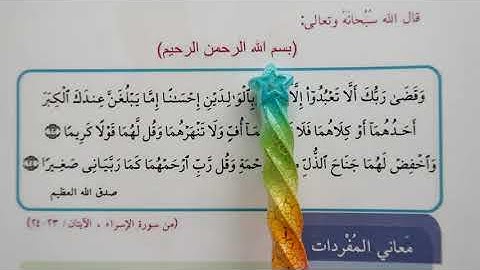 قال الله سُبْحانَهُ وتعالى:
(بسم الله الرحمن الرحيم)
وَقَضَىٰ رَبُّكَ أَلَّا تَعْبُدُوٓا۟ إِلَّآ بِٱلْوَٰلِدَيْنِ إِحْسَـٰنًا إِمَّا يَبْلُغَنَّ عِندَكَ ٱلْكِبَرَ
أَحَدُهُمَآ أَوْ كِلَاهُمَا فَلَا أُفٍّ وَلَا تَنْهَرْهُمَا وَقُل لَّهُمَا قَوْلًا كَرِيمًا ﴿٢٣﴾
وَٱخْفِضْ لَهُمَا جَنَاحَ ٱلذُّلِّ وَقُل رَّبِّ ٱرْحَمْهُمَا كَمَا رَبَّيَانِى صَغِيرًا ﴿٢٤﴾
صدق الله العظيم
(من سورة الإسراء ، الآيتان / ٢٣-٢٤)
مَعاني المُفْرَدات